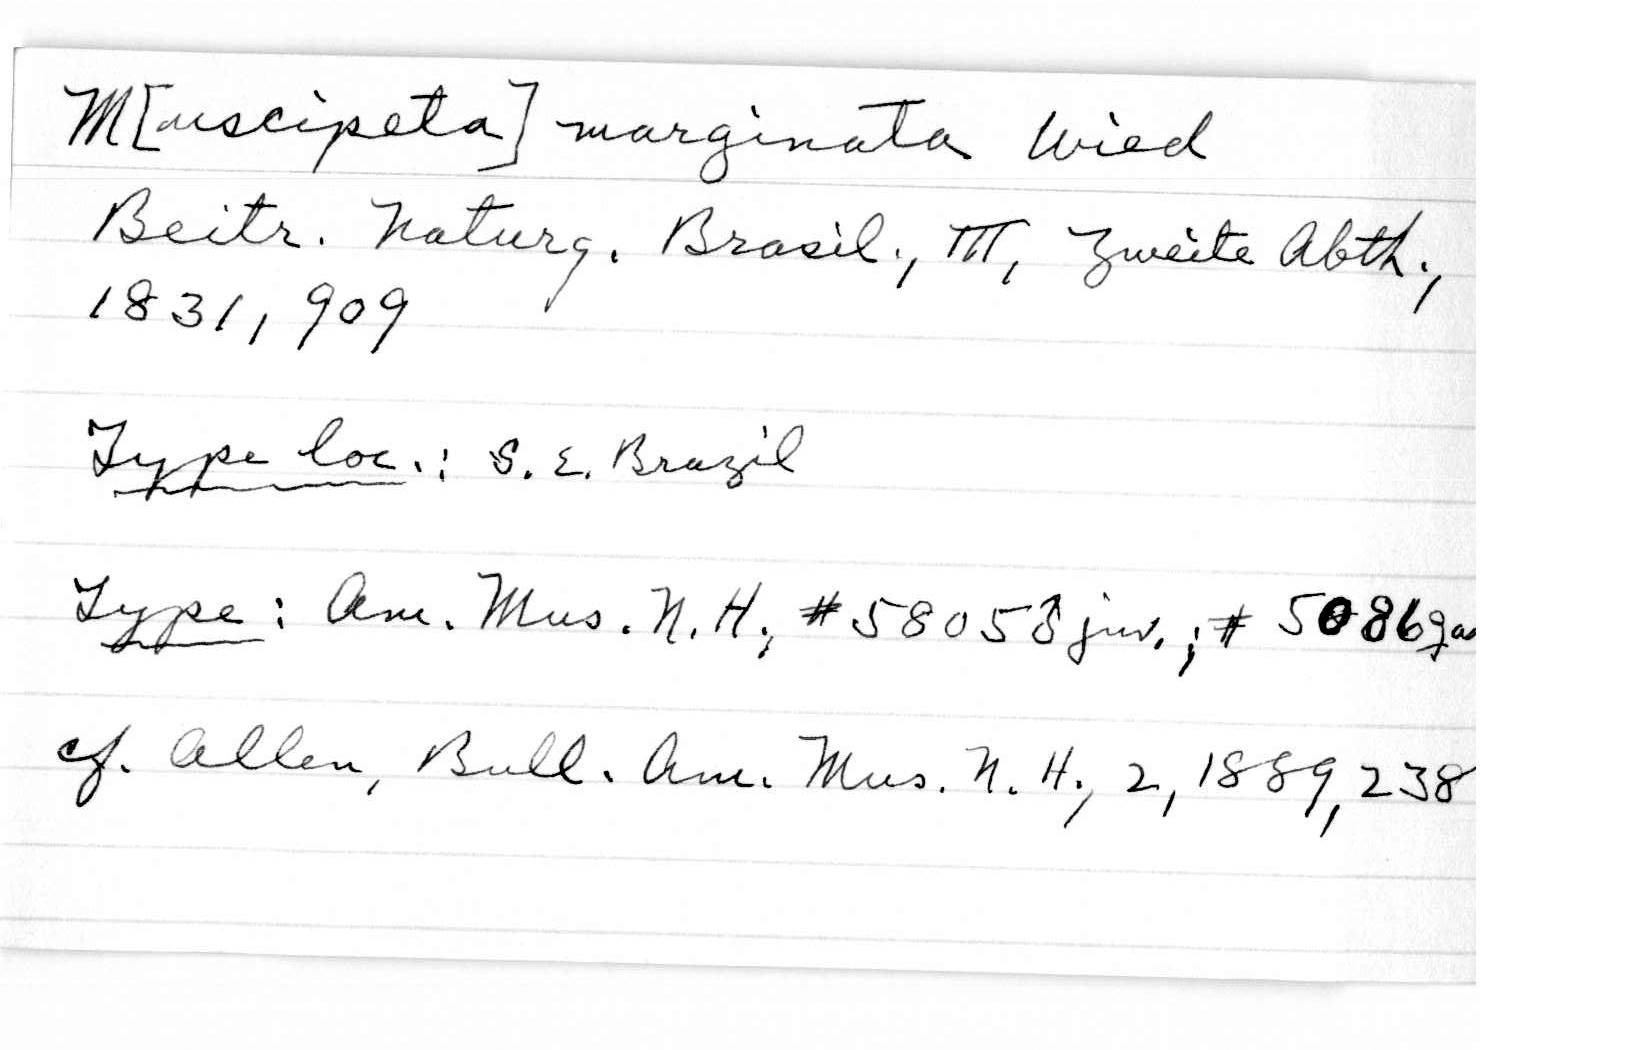 M[uscipeta] marginata Wied
Beitr. Naturg. Brasil., III, Zweite Abth.,
1831, 909
Type loc.: S. E. Brazil
Type: Am. Mus. N. H., # 5805 juv.; # 5086
cf. Allen, Bull. Am. Mus. N. H., 2, 1889, 238